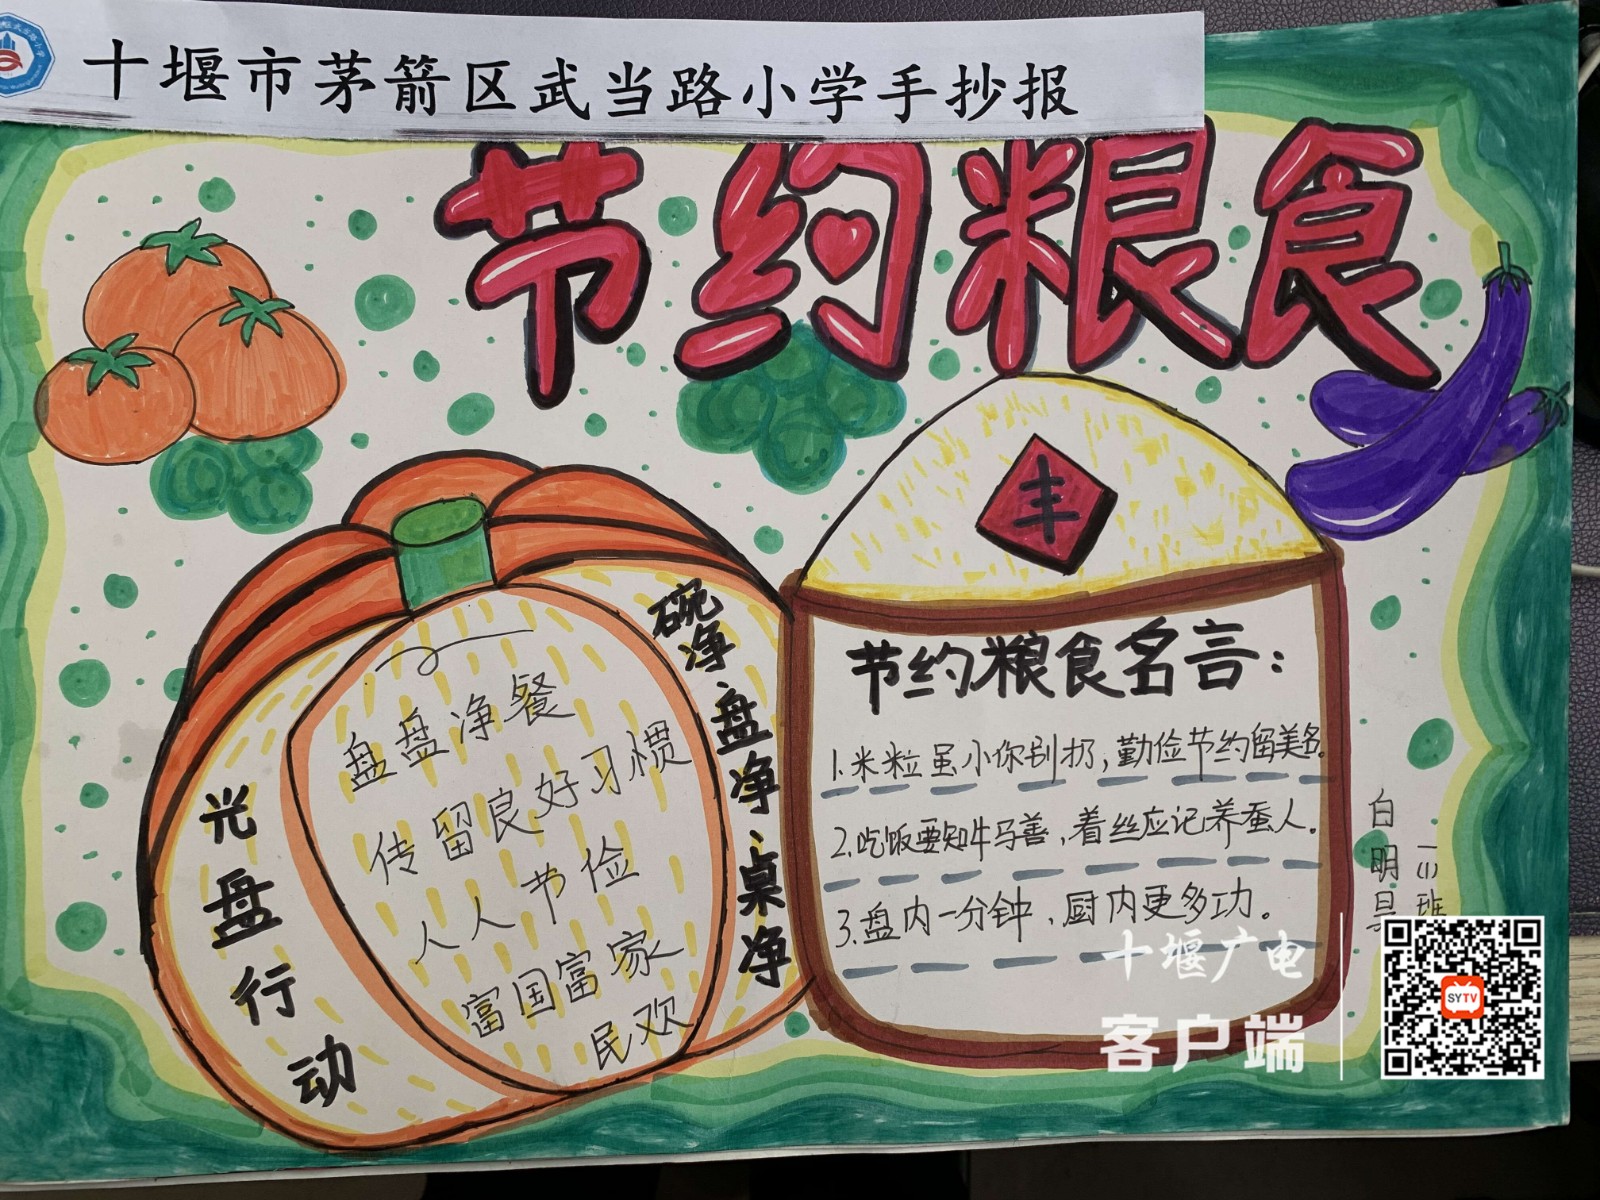 十堰市茅箭区武当路小学手抄报
节约粮食
丰
碗净、盘净、桌净
盘盘净餐
传留良好习惯
人人节俭
富国富家
民欢
光盘行动
节约粮食名言：
1.米粒虽小你别扔，勤俭节约留美名。
2.吃饭要知牛马善，着丝应记养蚕人。
3.盘内一分钟，厨内更多功。
白明
班
十堰广电
客户端
SYTV